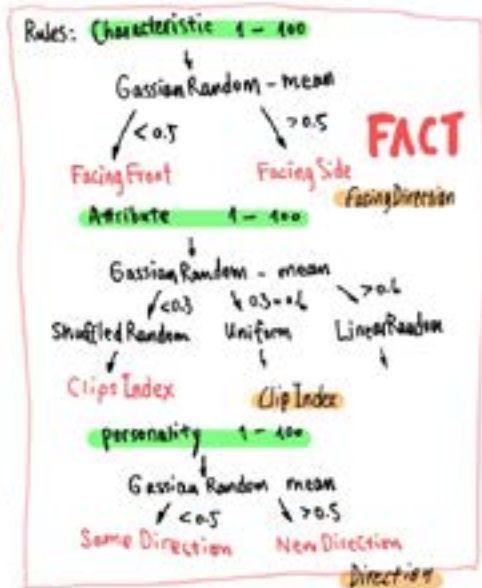 Rules: Characteristic 1 - 100
GassianRandom - mean
<0.5 >0.5
FACT
FacingFront FacingSide
FacingDirection
Attribute 1 - 100
GassianRandom - mean
<0.3 0.3-0.6 >0.6
ShuffledRandom Uniform LinearRandom
ClipsIndex ClipIndex
personality 1 - 100
Gassian Random mean
<0.5 >0.5
Same Direction New Direction
Direction